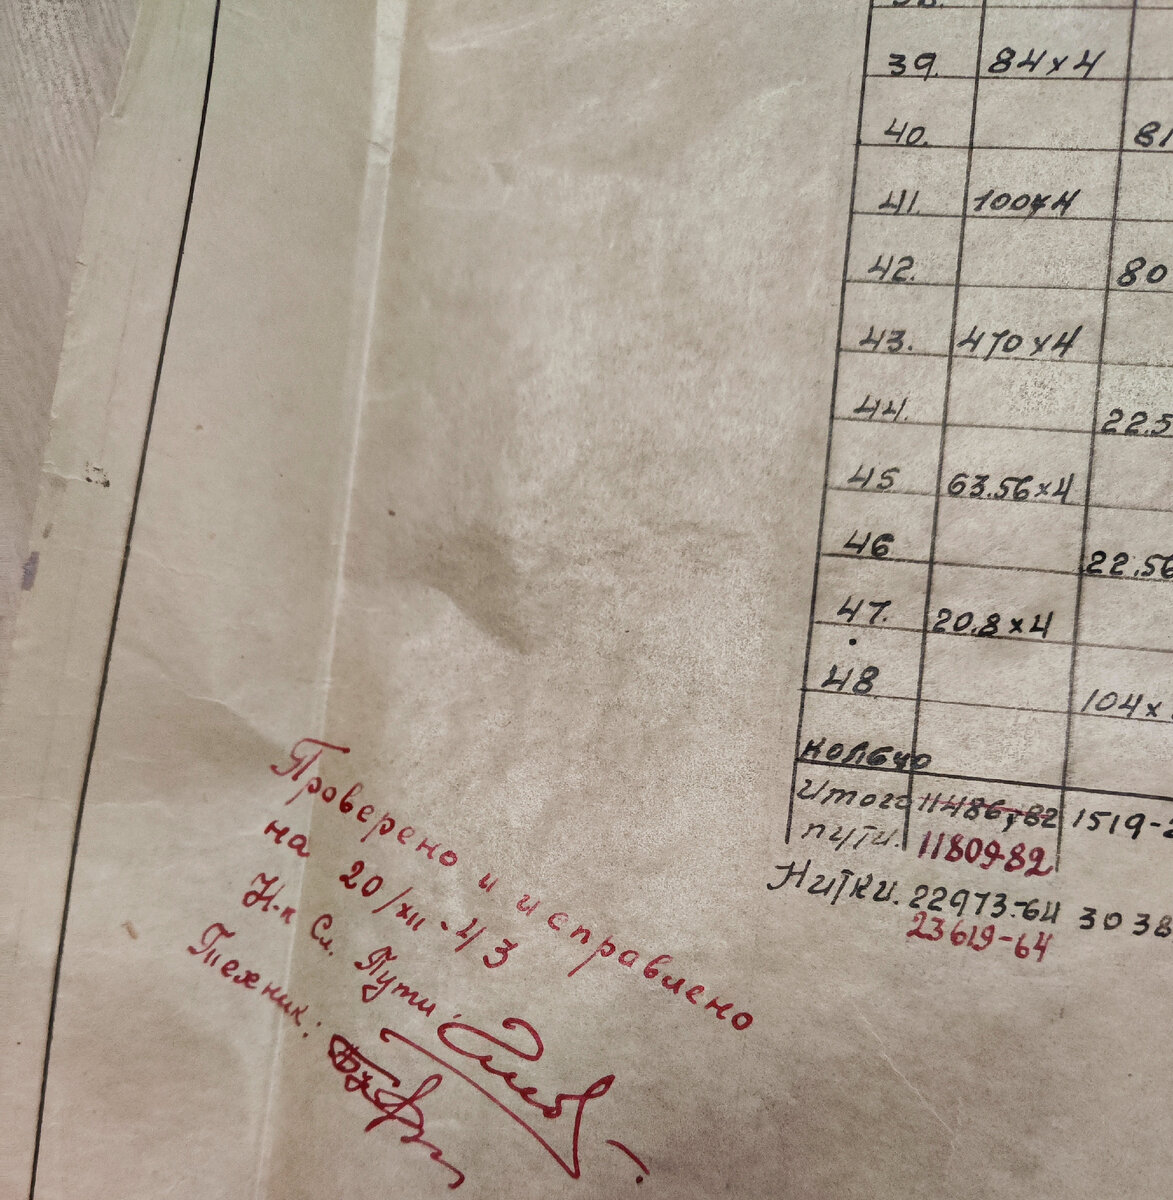 39. 84×4
40. 81
41. 100×4
42. 80
43. 470×4
44. 22.5
45 63.56×4
46 22.56
47. 20.8×4
48 104×
кольцо
Итого 11486,82 1519-
пути. 11809-82
Нитки. 22973-64 3038
23619-64
Проверено и исправлено
на 20/XII-43
Н-к Сл. Пути.
Техник: